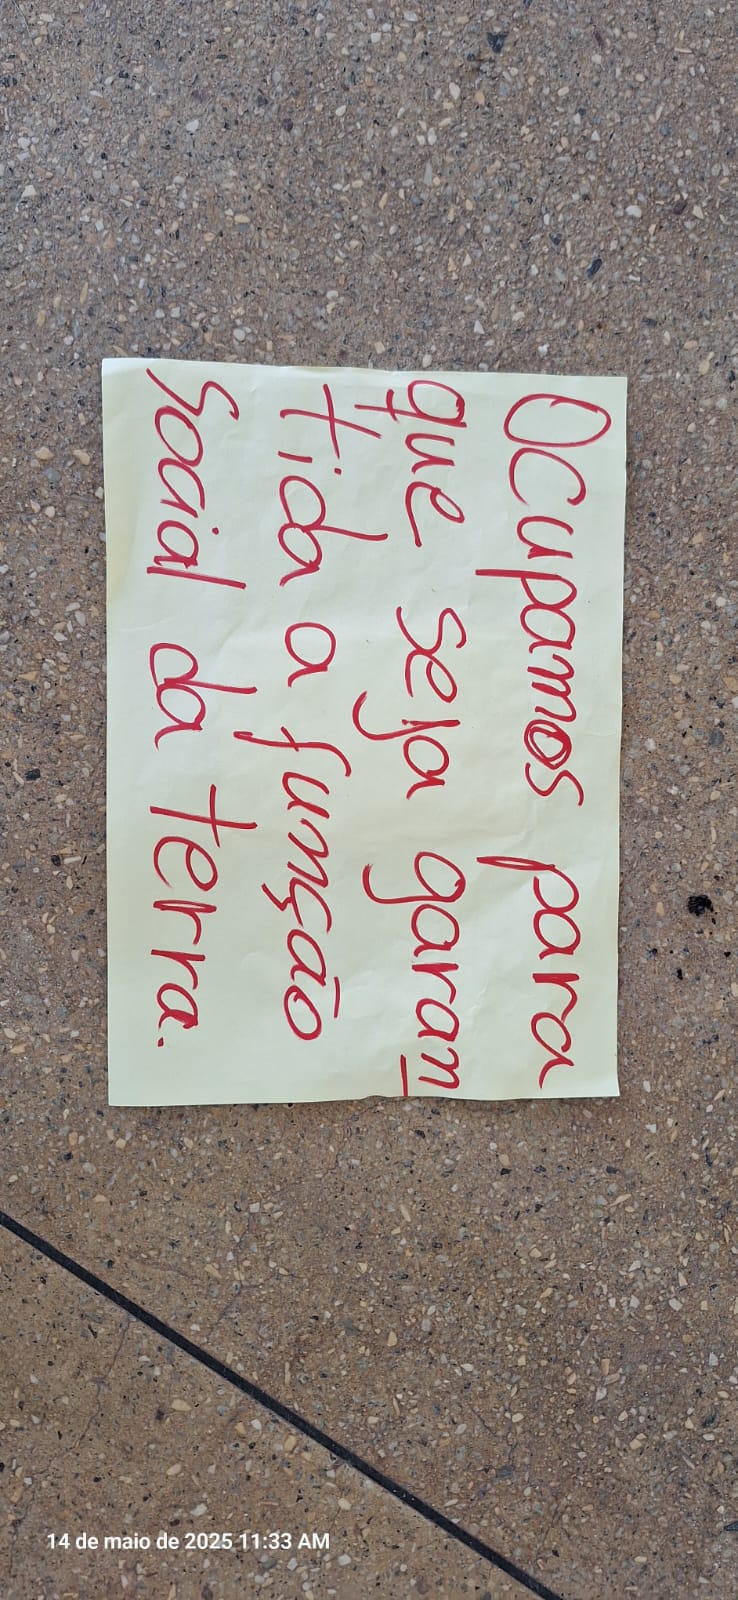 Ocupamos para
que seja garan_
tida a função
social da terra.
14 de maio de 2025 11:33 AM